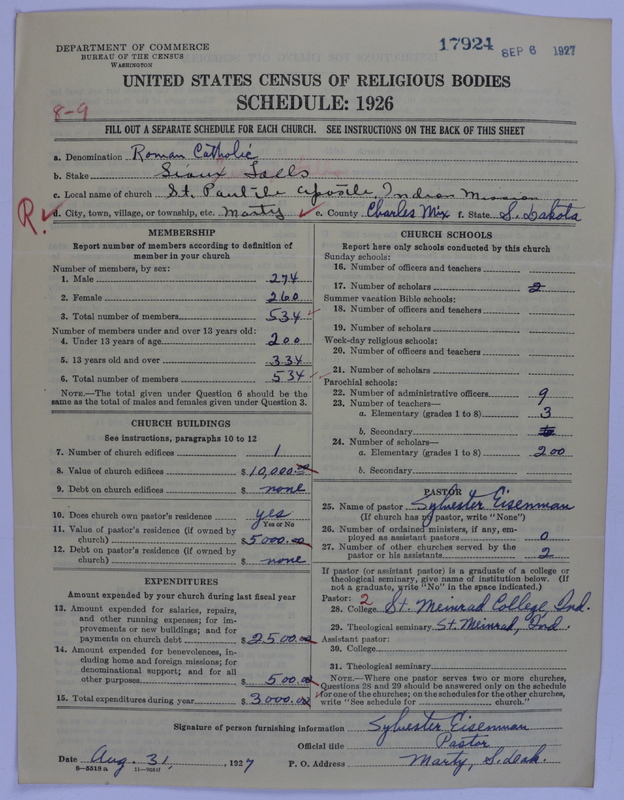 DEPARTMENT OF COMMERCE
BUREAU OF THE CENSUS
WASHINGTON
17924 SEP 6 1927
UNITED STATES CENSUS OF RELIGIOUS BODIES
SCHEDULE: 1926
8-9
FILL OUT A SEPARATE SCHEDULE FOR EACH CHURCH. SEE INSTRUCTIONS ON THE BACK OF THIS SHEET
a. Denomination Roman Catholic
b. Stake Sioux Falls
c. Local name of church St. Paul the apostle, Indian Mission
R. d. City, town, village, or township, etc. Marty e. County Charles Mix f. State S. Dakota
MEMBERSHIP
Report number of members according to definition of
member in your church
Number of members, by sex:
1. Male 274
2. Female 260
3. Total number of members 534
Number of members under and over 13 years old:
4. Under 13 years of age 200
5. 13 years old and over 334
6. Total number of members 534
NOTE.—The total given under Question 6 should be
same as the total of males and females given under Question 3.
CHURCH BUILDINGS
See instructions, paragraphs 10 to 12
7. Number of church edifices 1
8. Value of church edifices $ 10,000.00
9. Debt on church edifices $ none
10. Does church own pastor's residence yes
Yes or No
11. Value of pastor's residence (if owned by
church) $ 5000.00
12. Debt on pastor's residence (if owned by
church) $ none
EXPENDITURES
Amount expended by your church during last fiscal year
13. Amount expended for salaries, repairs,
and other running expenses; for im-
provements or new buildings; and for
payments on church debt $ 2500.00
14. Amount expended for benevolences, in-
cluding home and foreign missions; for
denominational support; and for all
other purposes $ 500.00
15. Total expenditures during year $ 3000.00
CHURCH SCHOOLS
Report here only schools conducted by this church
Sunday schools:
16. Number of officers and teachers
17. Number of scholars 2
Summer vacation Bible schools:
18. Number of officers and teachers
19. Number of scholars
Week-day religious schools:
20. Number of officers and teachers
21. Number of scholars
Parochial schools:
22. Number of administrative officers 9
23. Number of teachers—
a. Elementary (grades 1 to 8) 3
b. Secondary
24. Number of scholars—
a. Elementary (grades 1 to 8) 200
b. Secondary
PASTOR
25. Name of pastor Sylvester Eisenman
(If church has no pastor, write "None")
26. Number of ordained ministers, if any, em-
ployed as assistant pastors 0
27. Number of other churches served by the
pastor or his assistants 2
If pastor (or assistant pastor) is a graduate of a college or
theological seminary, give name of institution below. (If
not a graduate, write "No" in the space indicated.)
Pastor: 2
28. College St. Meinrad College, Ind.
29. Theological seminary St. Meinrad, Ind.
Assistant pastor:
30. College
31. Theological seminary
NOTE.—Where one pastor serves two or more churches,
Questions 28 and 29 should be answered only on the schedule
for one of the churches; on the schedules for the other churches,
write "See schedule for church."
Signature of person furnishing information Sylvester Eisenman
Official title Pastor
Date Aug. 31, 1927 P. O. Address Marty, S. Dak.
8—5518 a 11—9041f